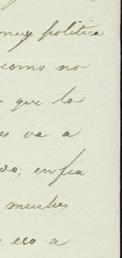 muy politica
como no
que lo
es va a
do; en fin
muchas
eso a